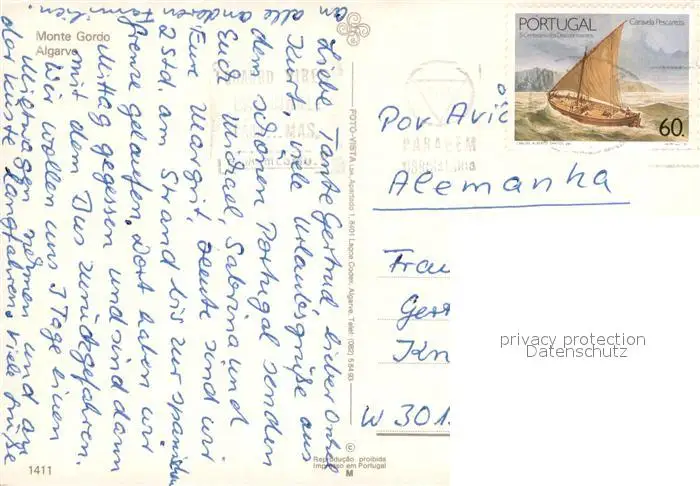 Monte Gordo
Algarve
Liebe Tante Gertrud, lieber Onkel
Kurt, viele Urlaubsgrüße aus
dem schönen Portugal senden
Euch Michael, Sabrina und
Eure Margrit. Heute sind wir
2 Std. am Strand bis zur spanischen
Grenze gelaufen. Dort haben wir
Mittag gegessen und sind dann
mit dem Bus zurückgefahren.
Wir wollen uns 3 Tage einen
Mietwagen nehmen und an
der Küste langfahren. Viele Grüße
an alle anderen
Familien.
1411
FOTO-VISTA Lda, Apartado 1, 8401 Lagoa Codex, Algarve, Telef. (082) 5 84 93
©
Reprodução proibida
Impresso em Portugal
M
PORTUGAL
Caravela Pescareza
5 Centenário dos Descobrimentos
60.
Por Avião
Alemanha
Frau
Gert
Kn
W 301
privacy protection
Datenschutz